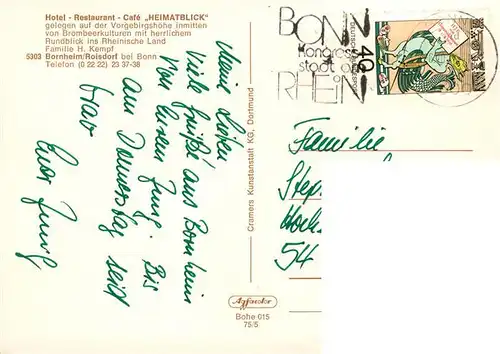 Hotel - Restaurant - Café „HEIMATBLICK"
gelegen auf der Vorgebirgshöhe inmitten
von Brombeerkulturen mit herrlichem
Rundblick ins Rheinische Land
Familie H. Kempf
5303 Bornheim/Roisdorf bei Bonn
Telefon (0 22 22) 23 37-38
Meine Lieben
Viele Grüße aus Bornheim
von Eurem Jung. Bis
am Donnerstag seid
brav
Euer Jung
Cramers Kunstanstalt KG, Dortmund
Agfacolor
Bohe 015
75/5
BONN
Kongress
stadt am
RHEIN
DEUTSCHE BUNDESPOST
40
Familie
Step
Hoch
54